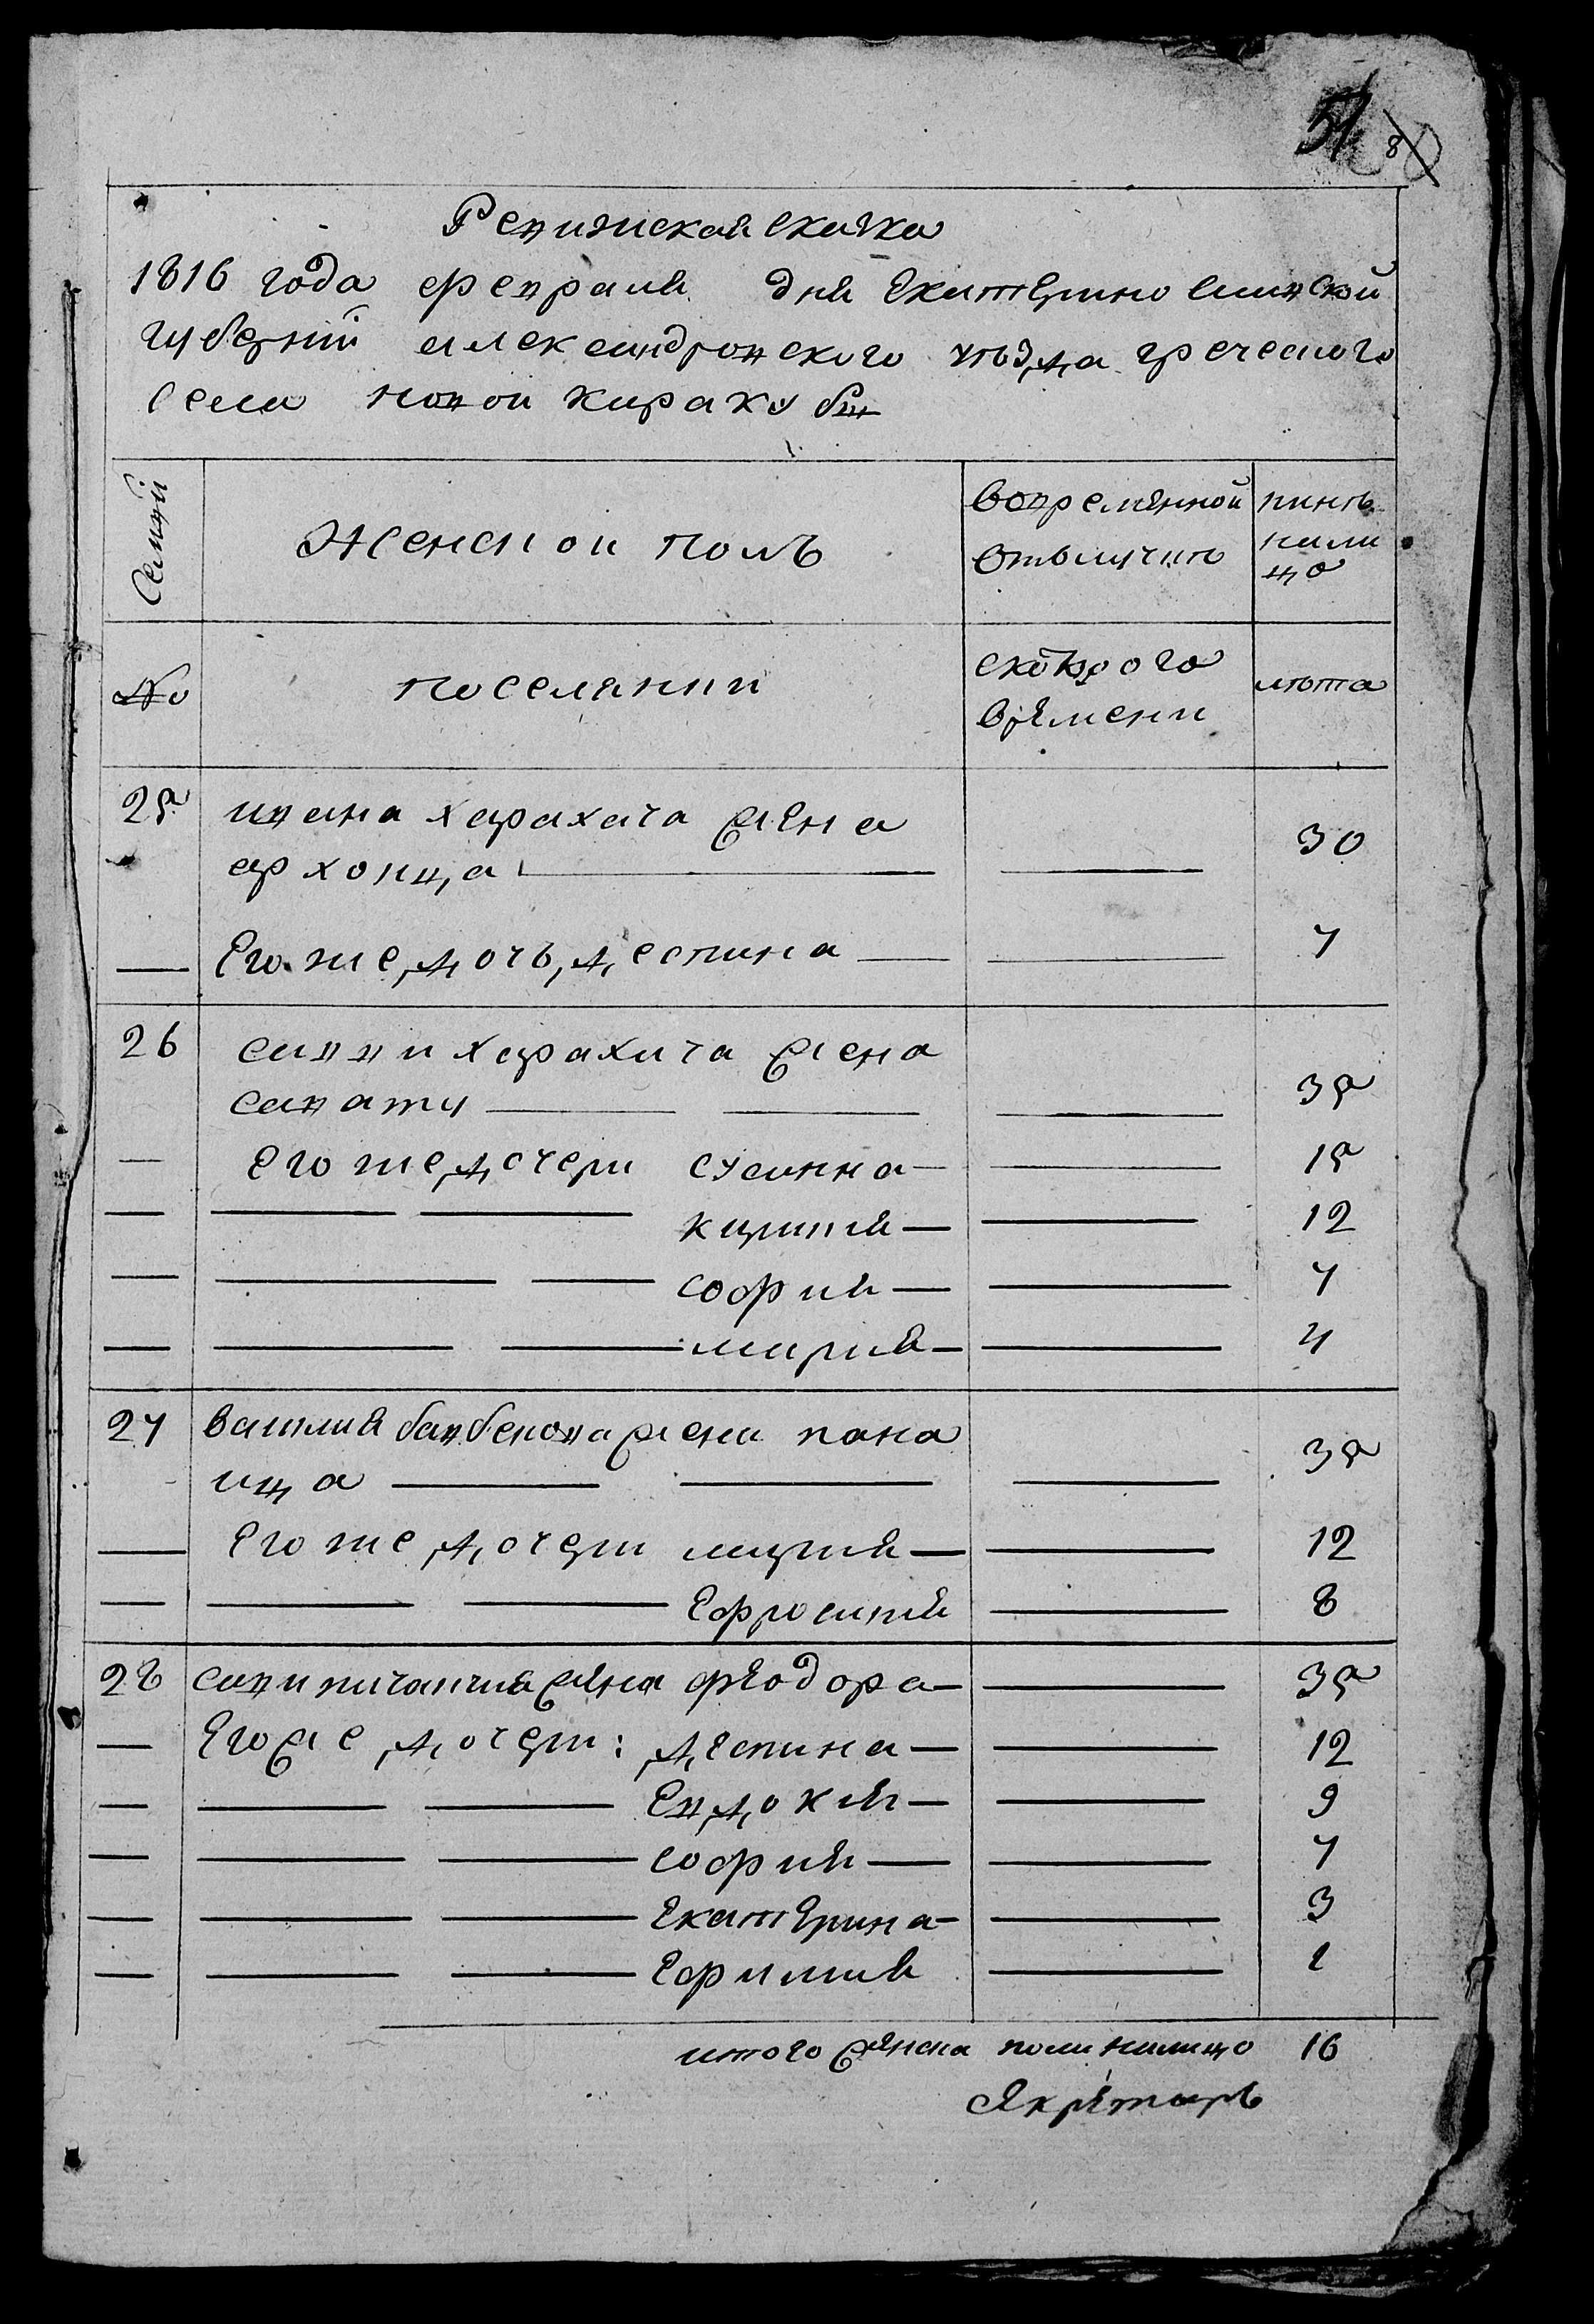 51 8
Ревизиская скаска
1816 года февраля дня Екатеринославской
губернии александровского уезда греческого
села новой каракубы
Семии
Женской полъ
вовременной
отълучке
нинѣ
нали
цо
№
поселянии
скоторого
времени
лѣта
25 ивана харахаша жена
архонца 30
Его же дочь деспина 7
26 савви харахаша жена
савату 35
его же дочери сусанна 15
кириия 12
софия 7
мария 4
27 василия бавбекова жена пана
ица 35
Его же дочери мария 12
Ефросиния 8
28 сави пичахчия жена феодора 35
Егоже дочери: деспина 12
Евдокия 9
софия 7
Екатерина 3
Ефимия 1
итого женска пола налицо 16